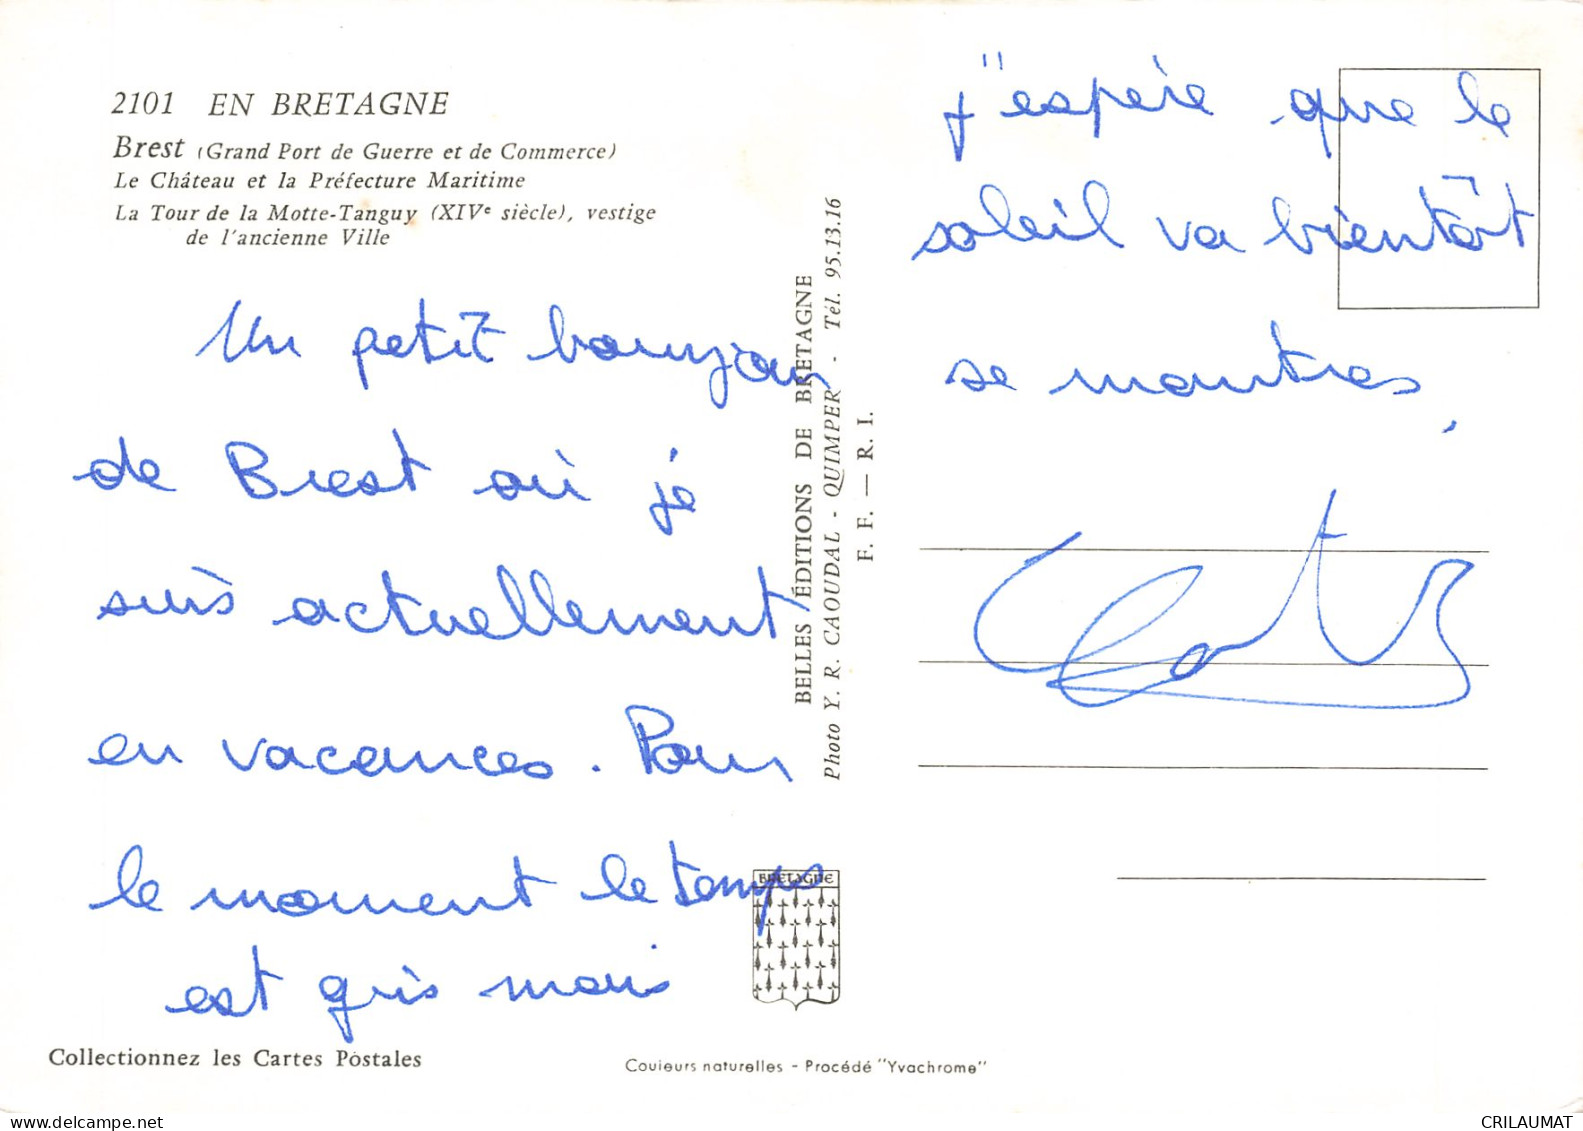 2101 EN BRETAGNE
Brest (Grand Port de Guerre et de Commerce)
Le Château et la Préfecture Maritime
La Tour de la Motte-Tanguy (XIVe siècle), vestige
de l'ancienne Ville
Un petit bonujour
de Brest où je
suis actuellement
en vacances. Pour
le moment le temps
est gris mais
j'espère que le
soleil va bientôt
se montrer,
BELLES ÉDITIONS DE BRETAGNE
Photo Y. R. CAOUDAL - QUIMPER - Tél. 95.13.16
F. F. — R. I.
BRETAGNE
Collectionnez les Cartes Postales
Couleurs naturelles - Procédé "Yvachrome"
CRILAUMAT